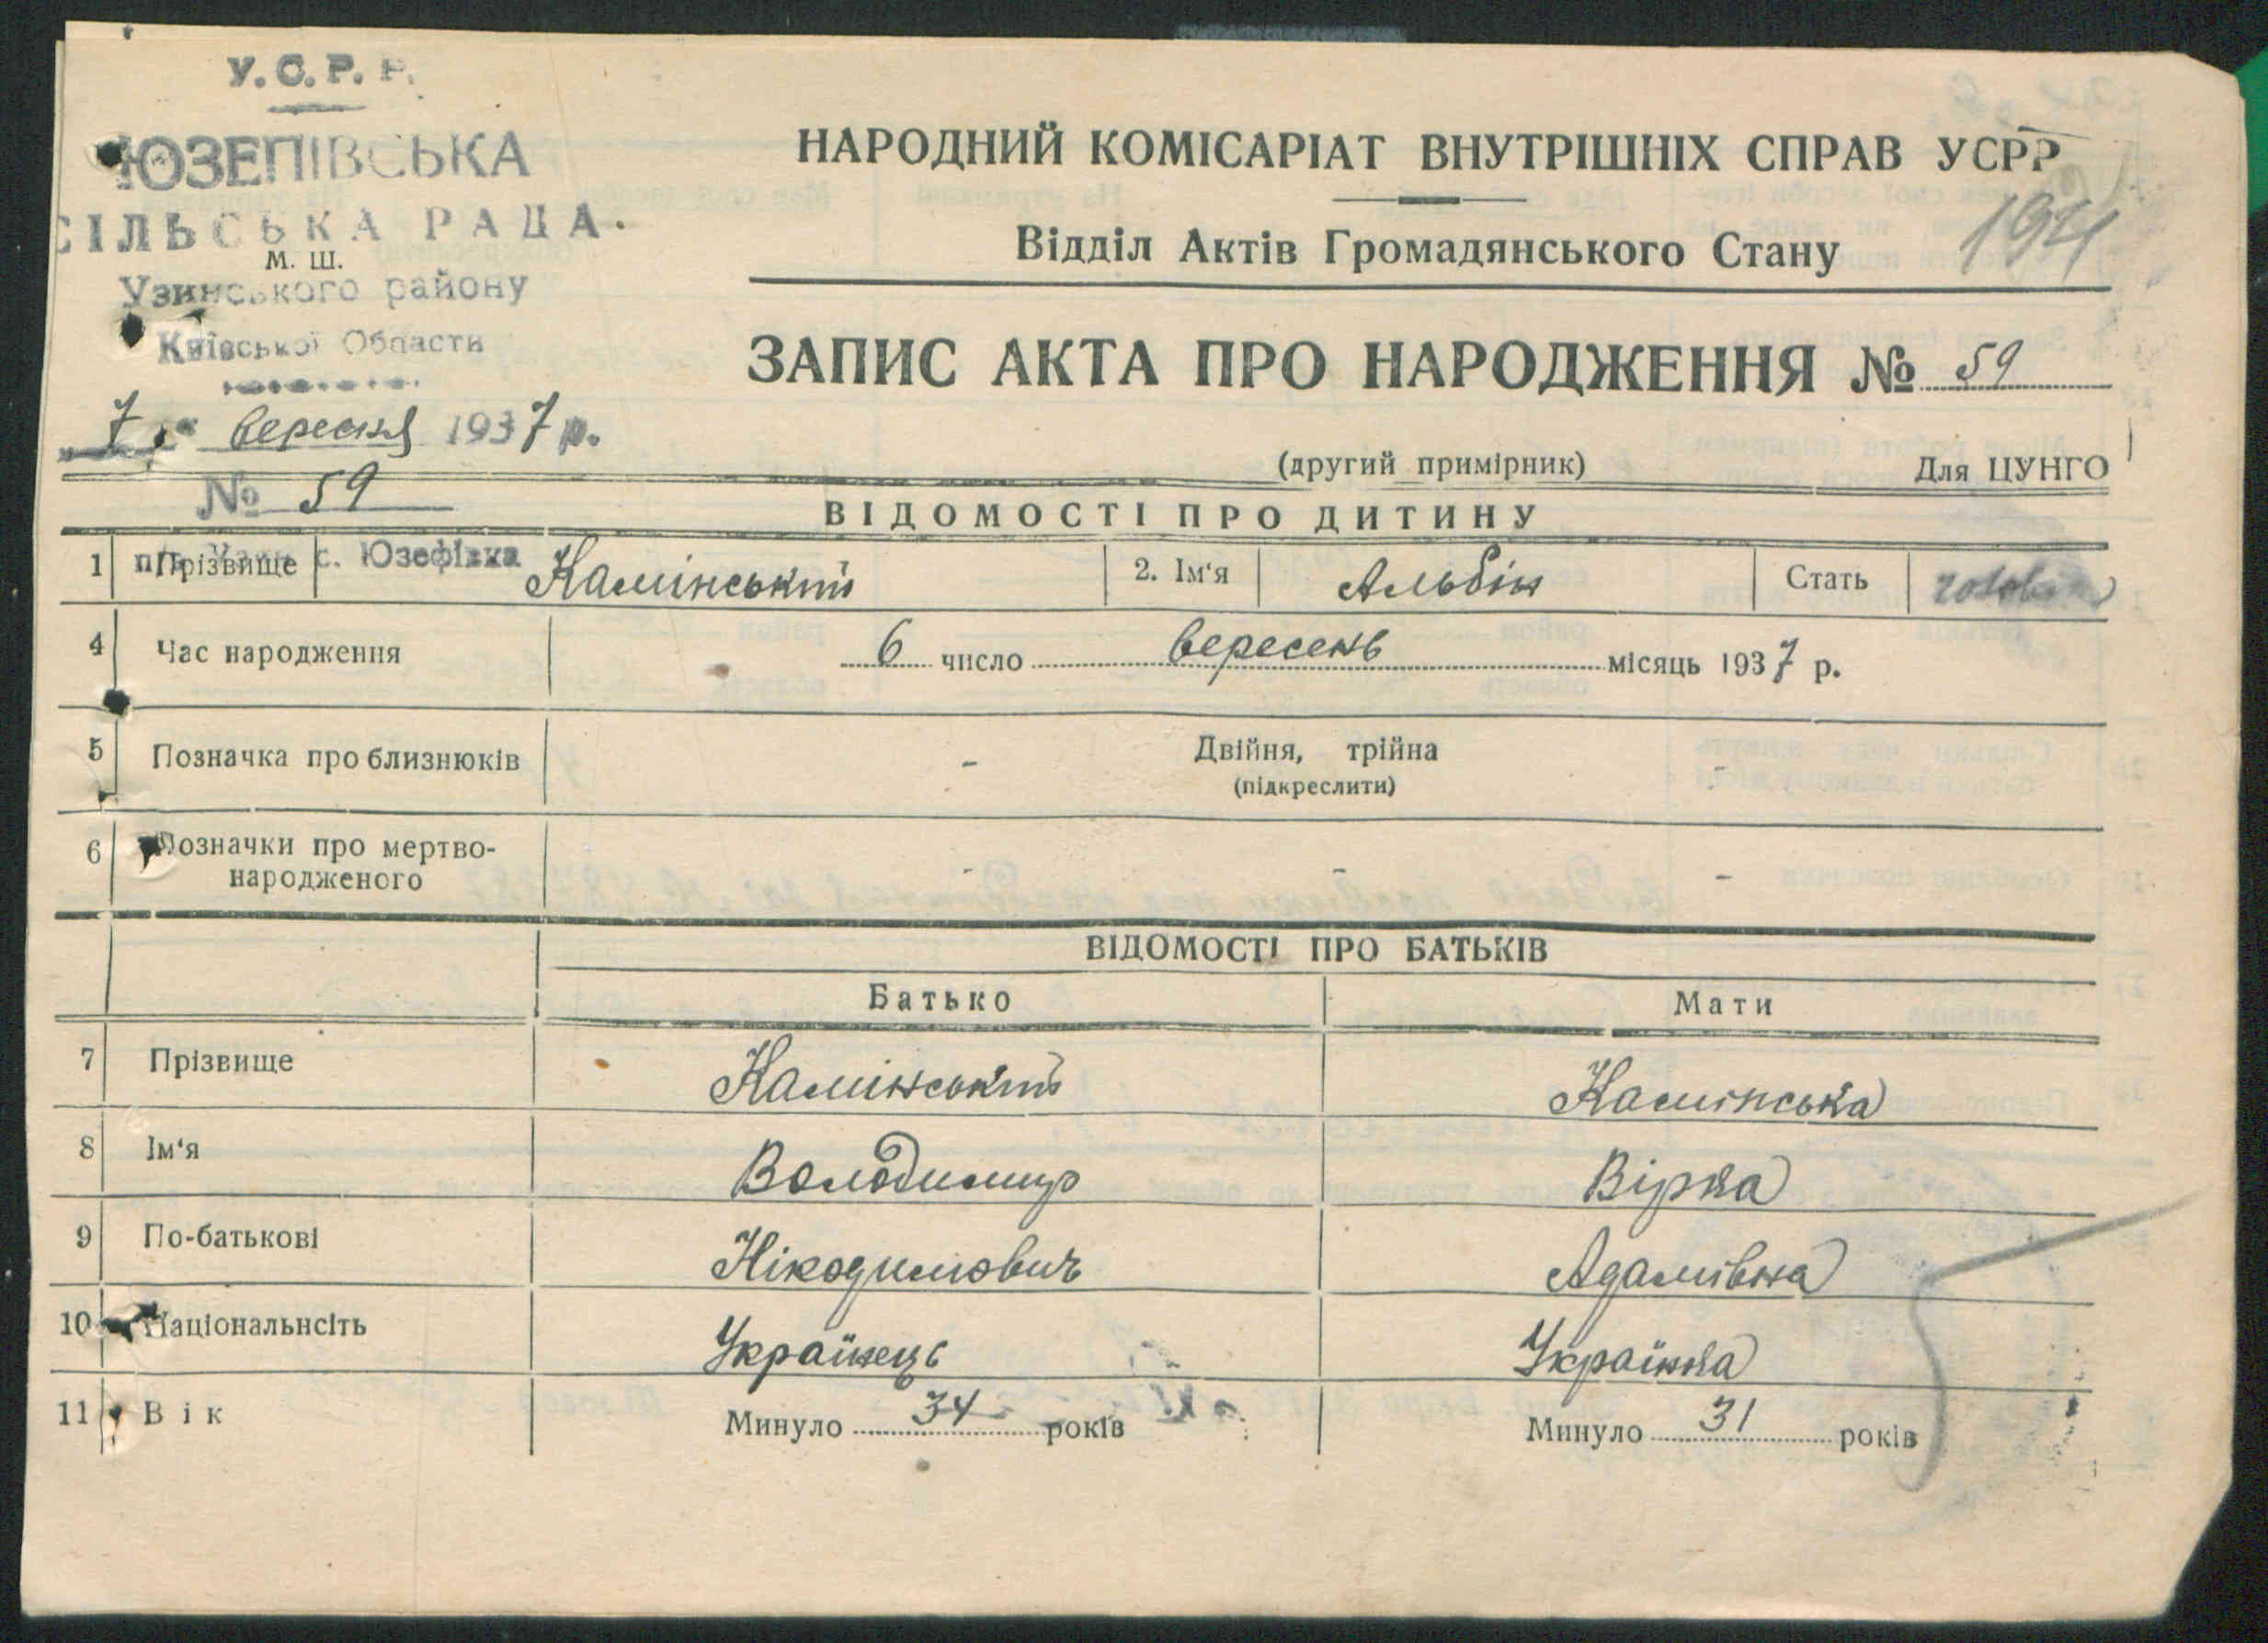 У.С.Р.Р.
ЮЗЕПІВСЬКА
СІЛЬСЬКА РАДА.
М. Ш.
Узинського району
Київської Области
7 вересня 1937 р.
№ 59
НАРОДНИЙ КОМІСАРІАТ ВНУТРІШНІХ СПРАВ УСРР
Відділ Актів Громадянського Стану
ЗАПИС АКТА ПРО НАРОДЖЕННЯ № 59
(другий примірник) Для ЦУНГО
ВІДОМОСТІ ПРО ДИТИНУ
1 Прізвище с. Юзефівка Камінський 2. Ім'я Альбін Стать
4 Час народження 6 число вересень місяць 1937 р.
5 Позначка про близнюків - Двійня, трійна -
(підкреслити)
6 Позначки про мертво-
народженого - - -
ВІДОМОСТІ ПРО БАТЬКІВ
Батько Мати
7 Прізвище Камінський Камінська
8 Ім'я Володимир Вірка
9 По-батькові Нікодимович Адамівна
10 Національнсіть Українець Українка
11 Вік Минуло 34 років Минуло 31 років